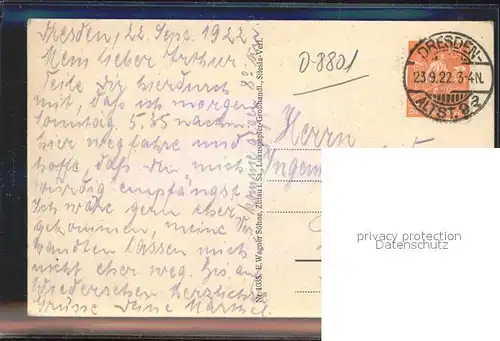 Dresden, 22. Sept. 1922
Mein lieber Arthur!
Teile Dir hierdurch
mit, daß ich morgen
Sonntag 5.35 nachm
hier wegfahre und
hoffe daß du mich
würdig empfängst.
Ich wäre gern eher
gekommen, meine Ver
wandten lassen mich
nicht eher weg. Bis auf
Wiedersehen herzlichste
Grüße Deine
Nr. E. Wagner Söhne, Zittau i. Sa., Luxuspapier-Großhandl., Silesia-Verl.
D-8801
DRESDEN-
23.9.22. 3-4N.
ALTST.
Herrn
Ingen
privacy protection
Datenschutz